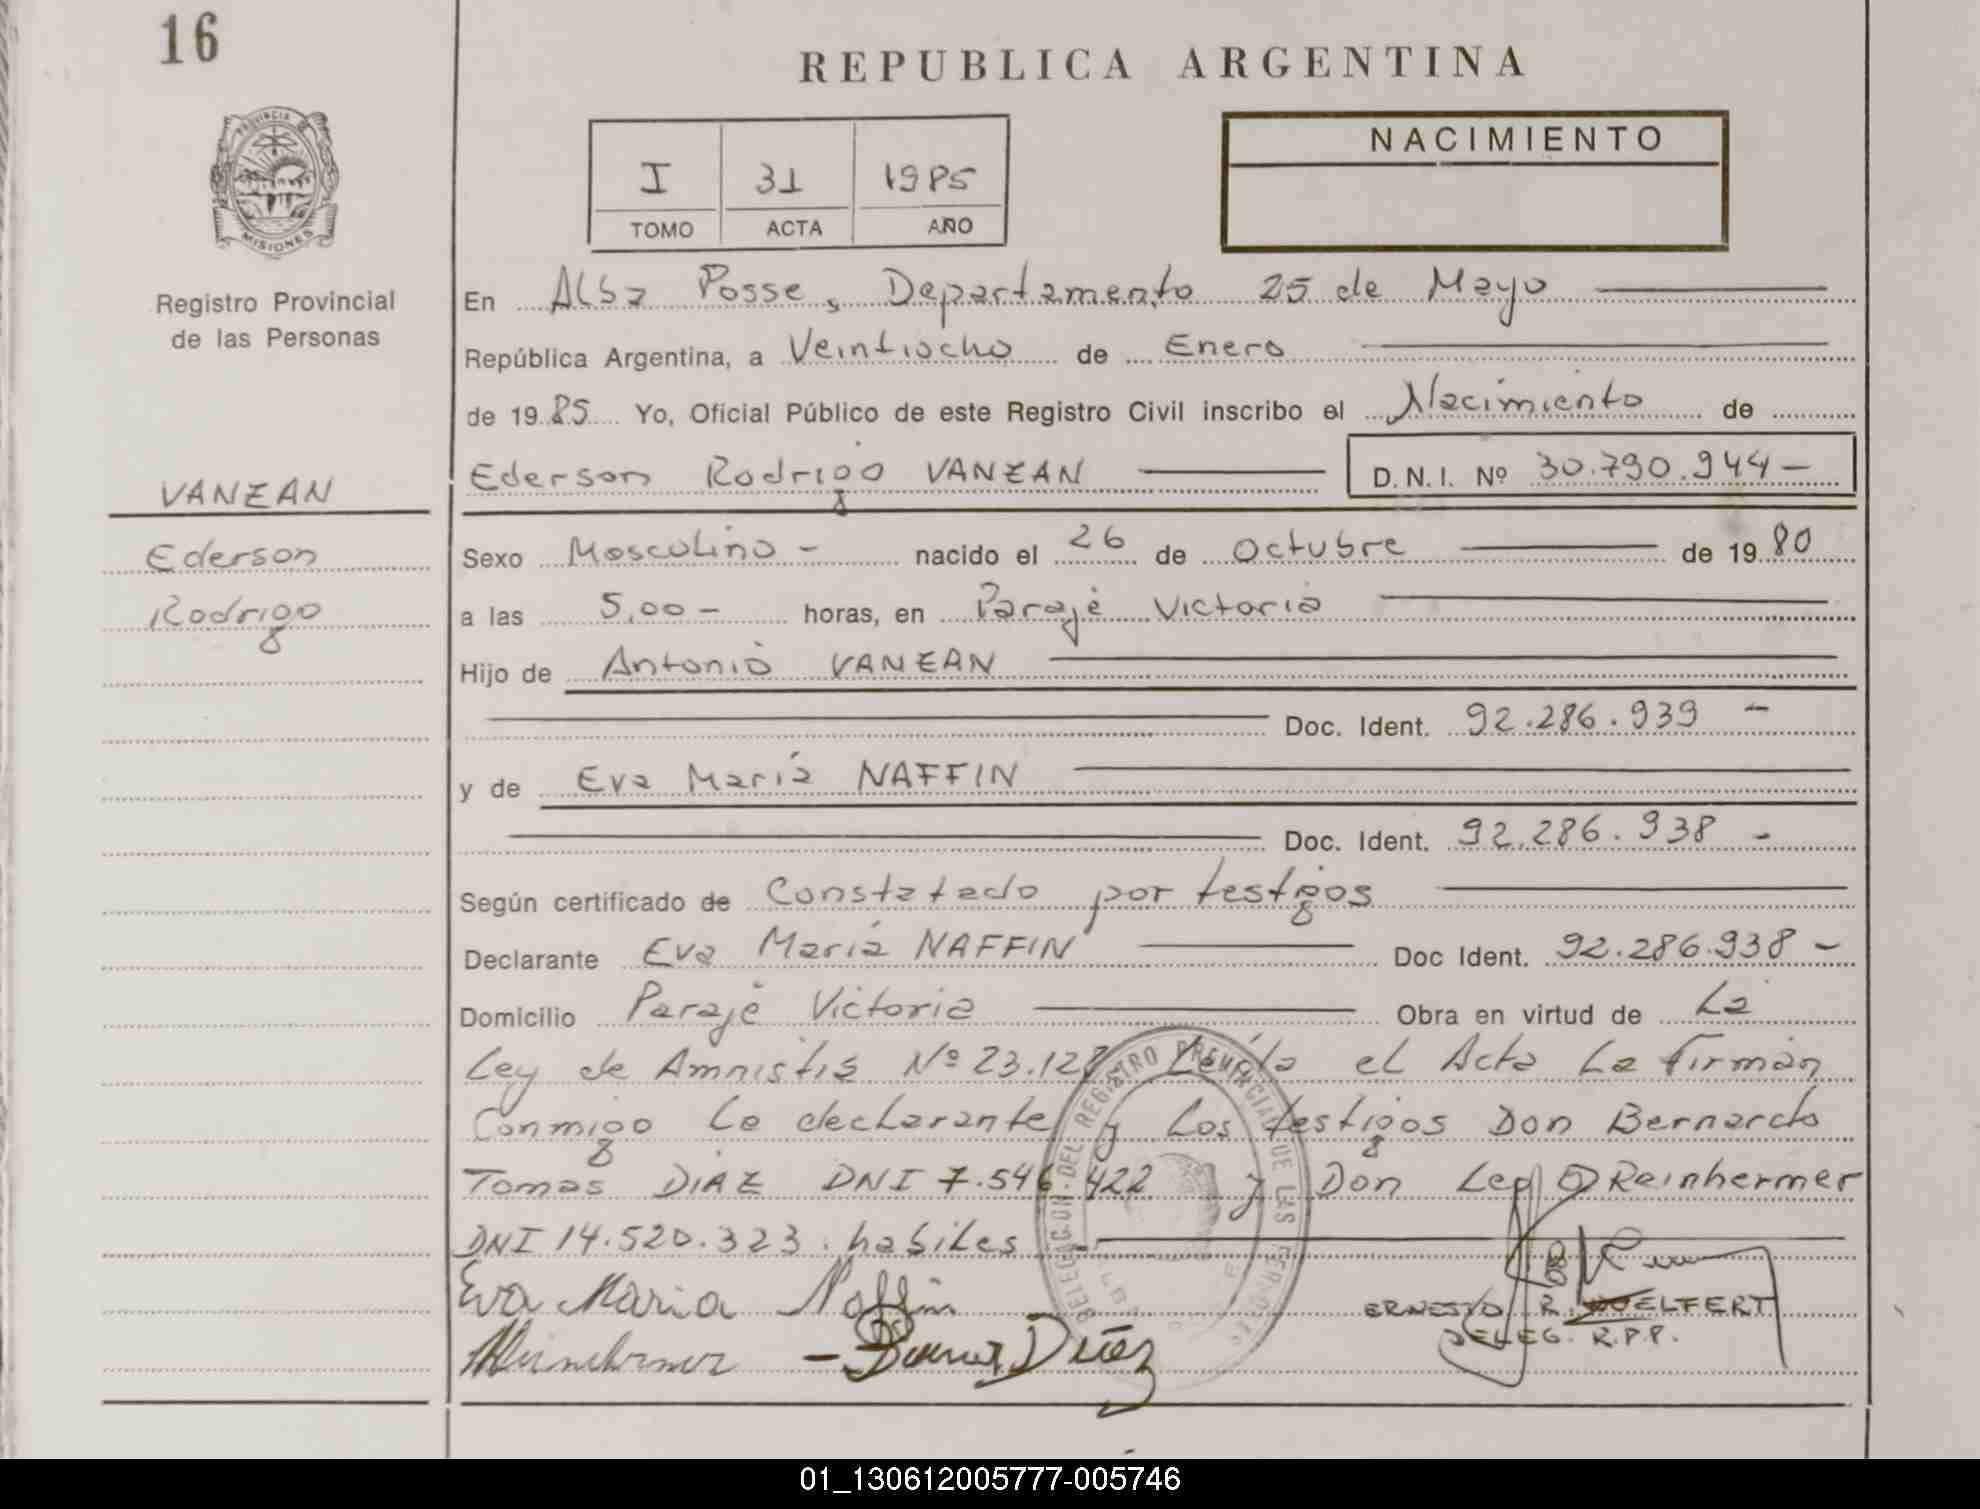 16
REPUBLICA ARGENTINA
PROVINCIA DE
MISIONES
Registro Provincial
de las Personas
I 31 1985
TOMO ACTA AÑO
NACIMIENTO
En Alba Posse, Departamento 25 de Mayo
República Argentina, a Veintiocho de Enero
de 1985 Yo, Oficial Público de este Registro Civil inscribo el Nacimiento de
Ederson Rodrigo VANZAN D.N.I. Nº 30.790.944-
VANZAN
Ederson
Rodrigo
Sexo Masculino - nacido el 26 de octubre de 1980
a las 5,00- horas, en Paraje Victoria
Hijo de Antonio VANZAN
Doc. Ident. 92.286.939 -
y de Eva María NAFFIN
Doc. Ident. 92.286.938 -
Según certificado de Constatado por testigos
Declarante Eva María NAFFIN Doc Ident. 92.286.938 -
Domicilio Paraje Victoria Obra en virtud de La
Ley de Amnistia Nº 23.128 Leída el Acta La firman
Conmigo la declarante y Los testigos Don Bernardo
Tomas DIAZ DNI 7.546.422 y Don Reinhermer
DNI 14.520.323. habiles -
Eva Maria Naffin
ERNESTO R. WOELFERT
DELEG. R.P.P.
Diaz
DELEGACION DEL REGISTRO PROVINCIAL DE LAS PERSONAS
01_130612005777-005746